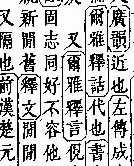 廣韻近也左傳成
爾雅釋詁代也書
又爾雅釋言俔
固志同好不容他
新閒舊釋文閒閒
又隔也前漢楚元